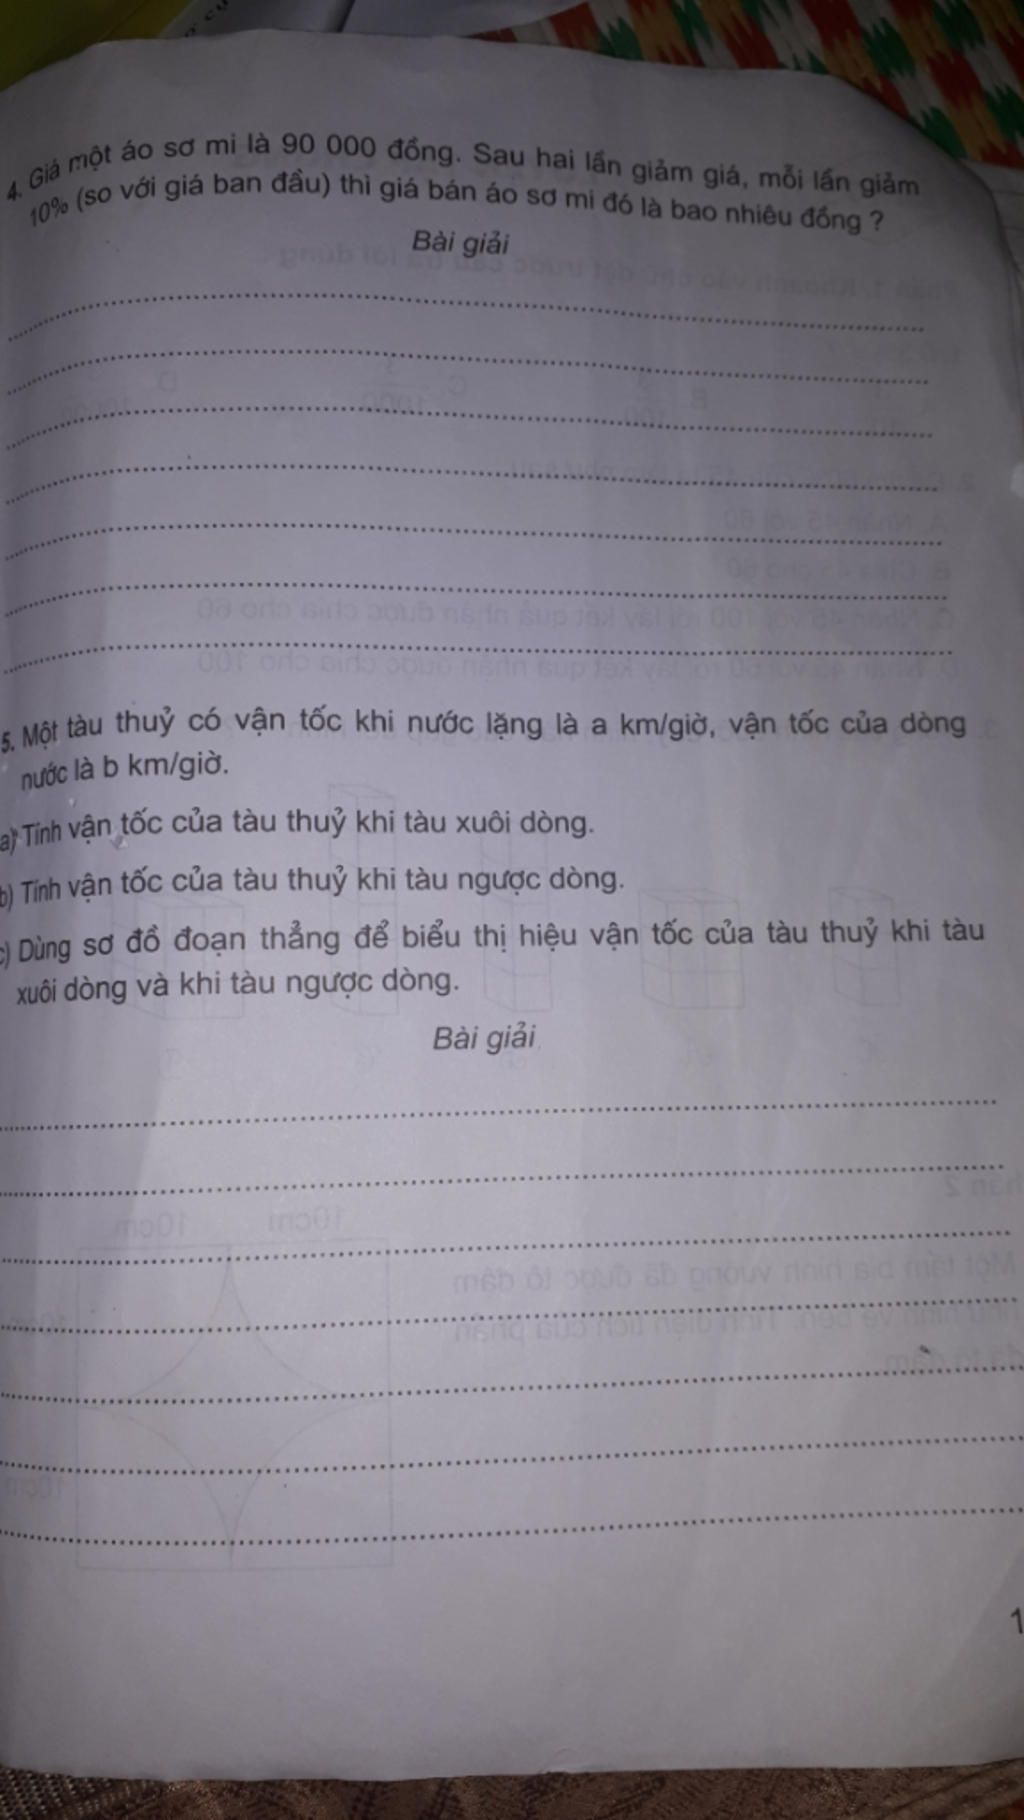 4. Giá một áo sơ mi là 90 000 đồng. Sau hai lần giảm giá, mỗi lần giảm
10% (so với giá ban đầu) thì giá bán áo sơ mi đó là bao nhiêu đồng ?
Bài giải
5. Một tàu thuỷ có vận tốc khi nước lặng là a km/giờ, vận tốc của dòng
nước là b km/giờ.
a) Tính vận tốc của tàu thuỷ khi tàu xuôi dòng.
b) Tính vận tốc của tàu thuỷ khi tàu ngược dòng.
c) Dùng sơ đồ đoạn thẳng để biểu thị hiệu vận tốc của tàu thuỷ khi tàu
xuôi dòng và khi tàu ngược dòng.
Bài giải
1